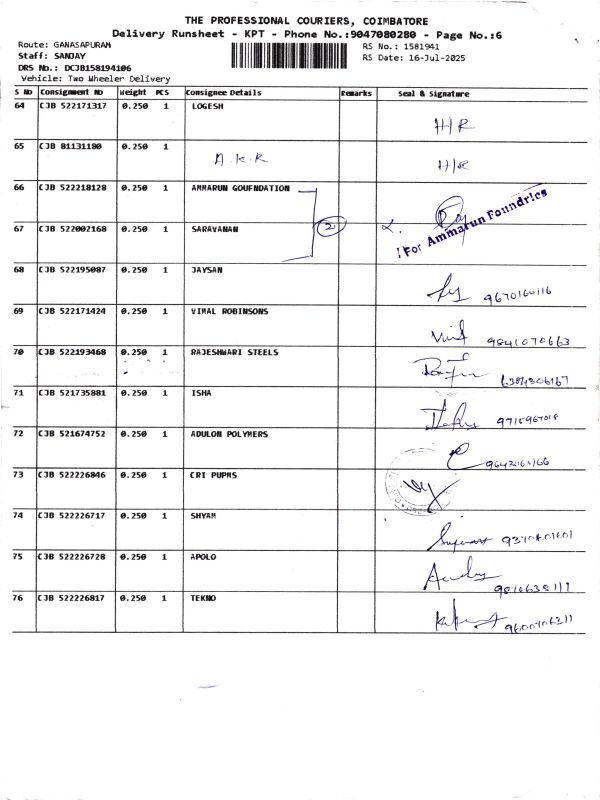 THE PROFESSIONAL COURIERS, COIMBATORE
Delivery Runsheet - KPT - Phone No.:9047080280 - Page No.:6
Route: GANASAPURAM
RS No.: 1581941
Staff: SANJAY
RS Date: 16-Jul-2025
DRS No.: DCJB158194106
Vehicle: Two Wheeler Delivery
S NO Consignment NO Weight PCS Consignee Details Remarks Seal & Signature
64 CJB 522171317 0.250 1 LOGESH
H/R
65 CJB 81131180 0.250 1
A.K.R
H/R
66 CJB 522218128 0.250 1 AMMARUN GOUFNDATION
2
For Ammarun Foundries
67 CJB 522002168 0.250 1 SARAVANAN
68 CJB 522195087 0.250 1 JAYSAN
9670160116
69 CJB 522171424 0.250 1 VIMAL ROBINSONS
9841070663
70 CJB 522193468 0.250 1 RAJESHWARI STEELS
6384306167
71 CJB 521735881 0.250 1 ISHA
72 CJB 521674752 0.250 1 ADULON POLYMERS
73 CJB 522226846 0.250 1 CRI PUPMS
74 CJB 522226717 0.250 1 SHYAM
75 CJB 522226728 0.250 1 APOLO
76 CJB 522226817 0.250 1 TEKNO